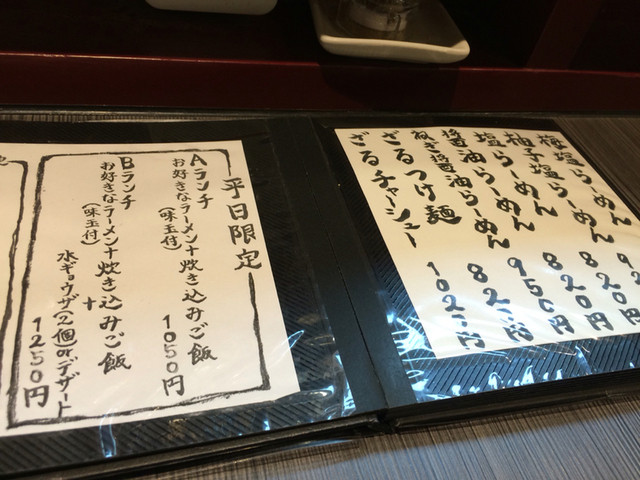 梅塩らーめん
柚子塩らーめん
塩らーめん 820円
醤油らーめん 820円
ねぎ醤油らーめん 950円
ざるつけ麺
ざるチャーシュー
平日限定
Aランチ
お好きなラーメン+炊き込みご飯
(味玉付)
1050円
Bランチ
お好きなラーメン+炊き込みご飯
(味玉付)
+
水ギョウザ(2個)orデザート
1250円